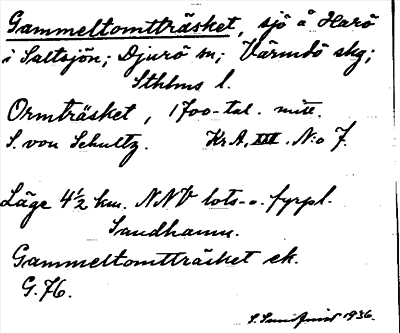 Gammeltomtträsket, sjö å Harö
i Saltsjön; Djurö sn; Värmdö skg;
Sthlms l.
Ormträsket, 1700-tal. mitt.
S. von Schultz. Kr.A. XIII. N:o 7.
Läge 4 1/2 km. NNV lots- o. fyrpl.
Sandhamn.
Gammeltomtträsket ek.
G. 76.
1936.